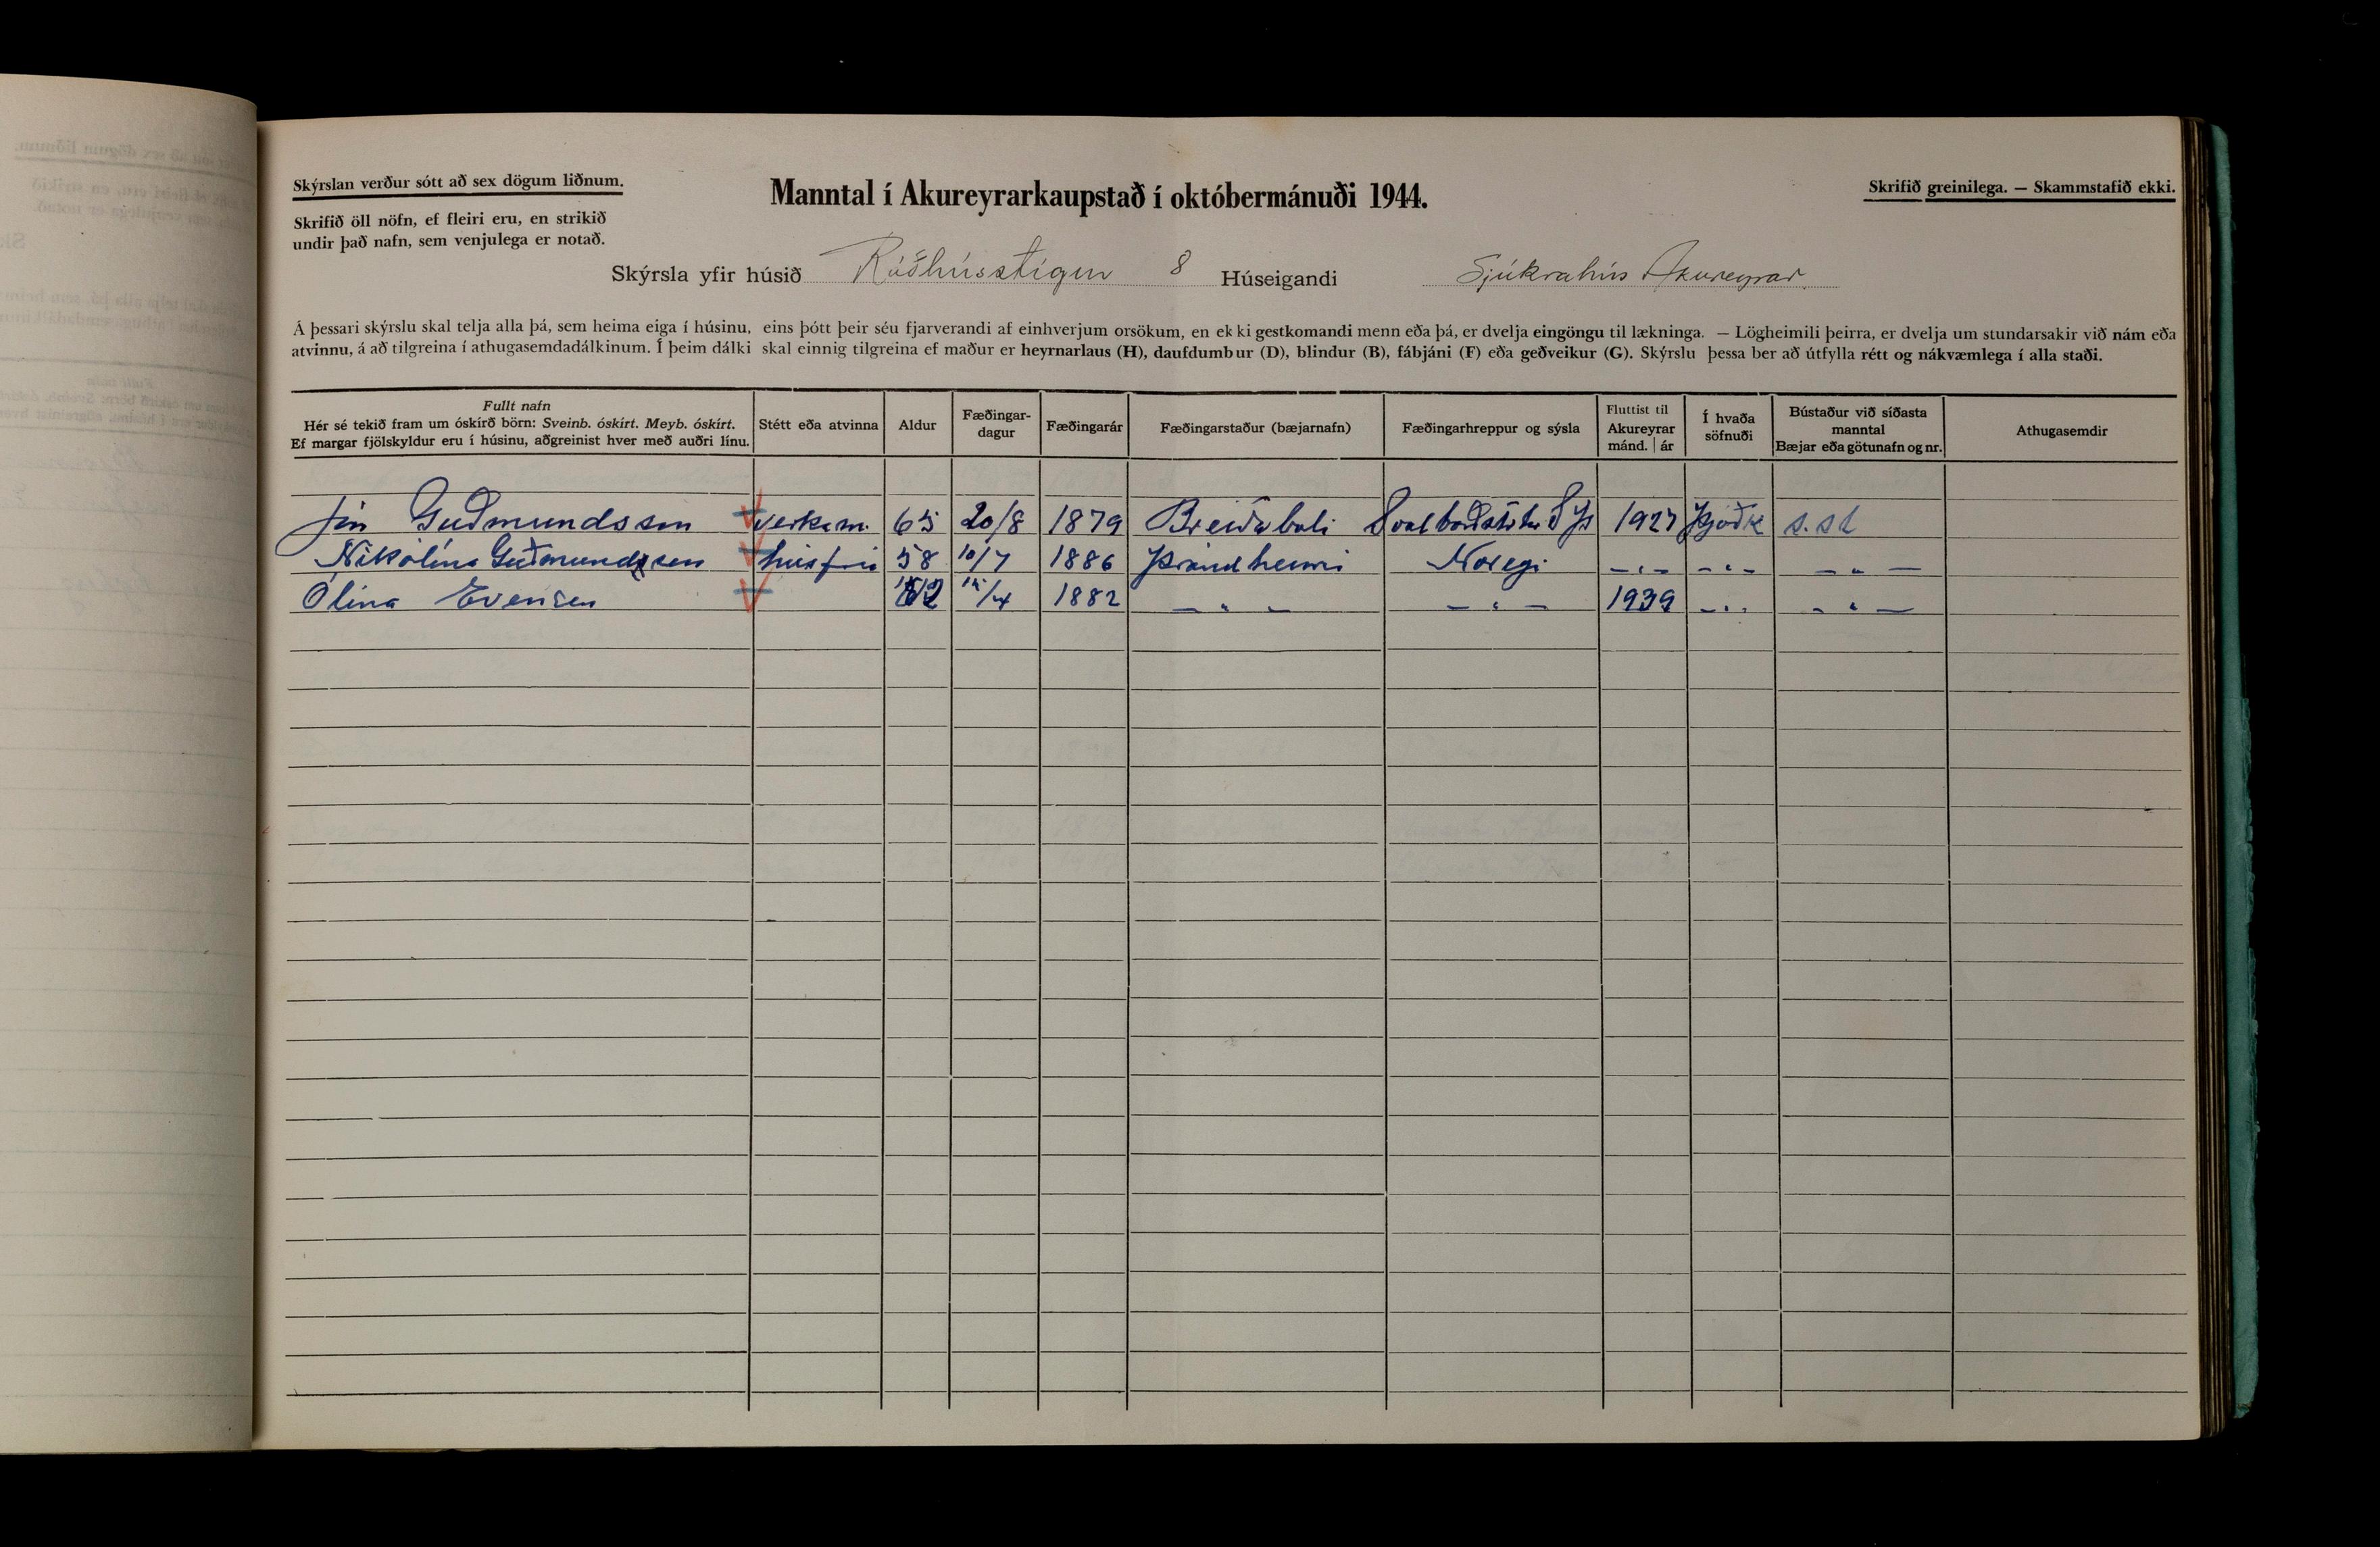 Skýrslan verður sótt að sex dögum liðnum.
Skrifið öll nöfn, ef fleiri eru, en strikið
undir það nafn, sem venjulega er notað.
Manntal í Akureyrarkaupstað í októbermánuði 1944.
Skrifið greinilega. — Skammstafið ekki.
Skýrsla yfir húsið Ráðhússtígur 8 Húseigandi Sjúkrahús Akureyrar.
Á þessari skýrslu skal telja alla þá, sem heima eiga í húsinu, eins þótt þeir séu fjarverandi af einhverjum orsökum, en ekki gestkomandi menn eða þá, er dvelja eingöngu til lækninga. — Lögheimili þeirra, er dvelja um stundarsakir við nám eða
atvinnu, á að tilgreina í athugasemdadálkinum. Í þeim dálki skal einnig tilgreina ef maður er heyrnarlaus (H), daufdumbur (D), blindur (B), fábjáni (F) eða geðveikur (G). Skýrslu þessa ber að útfylla rétt og nákvæmlega í alla staði.
Fullt nafn
Hér sé tekið fram um óskírð börn: Sveinb. óskírt. Meyb. óskírt.
Ef margar fjölskyldur eru í húsinu, aðgreinist hver með auðri línu.
Stétt eða atvinna
Aldur
Fæðingar-
dagur
Fæðingarár
Fæðingarstaður (bæjarnafn)
Fæðingarhreppur og sýsla
Fluttist til
Akureyrar
mánd. | ár
Í hvaða
söfnuði
Bústaður við síðasta
manntal
Bæjar eða götunafn og nr.
Athugasemdir
Jón Guðmundsson verkam. 65 20/8 1879 Breiðaboli 1927 Þjóðk s. st
Nikolína Guðmundsson húsfrú 58 10/7 1886 Þrándheimi Noregi – „ – – „ – – „ –
Ólína Evensen 62 /4 1882 – „ – – „ – 1939 – „ – – „ –